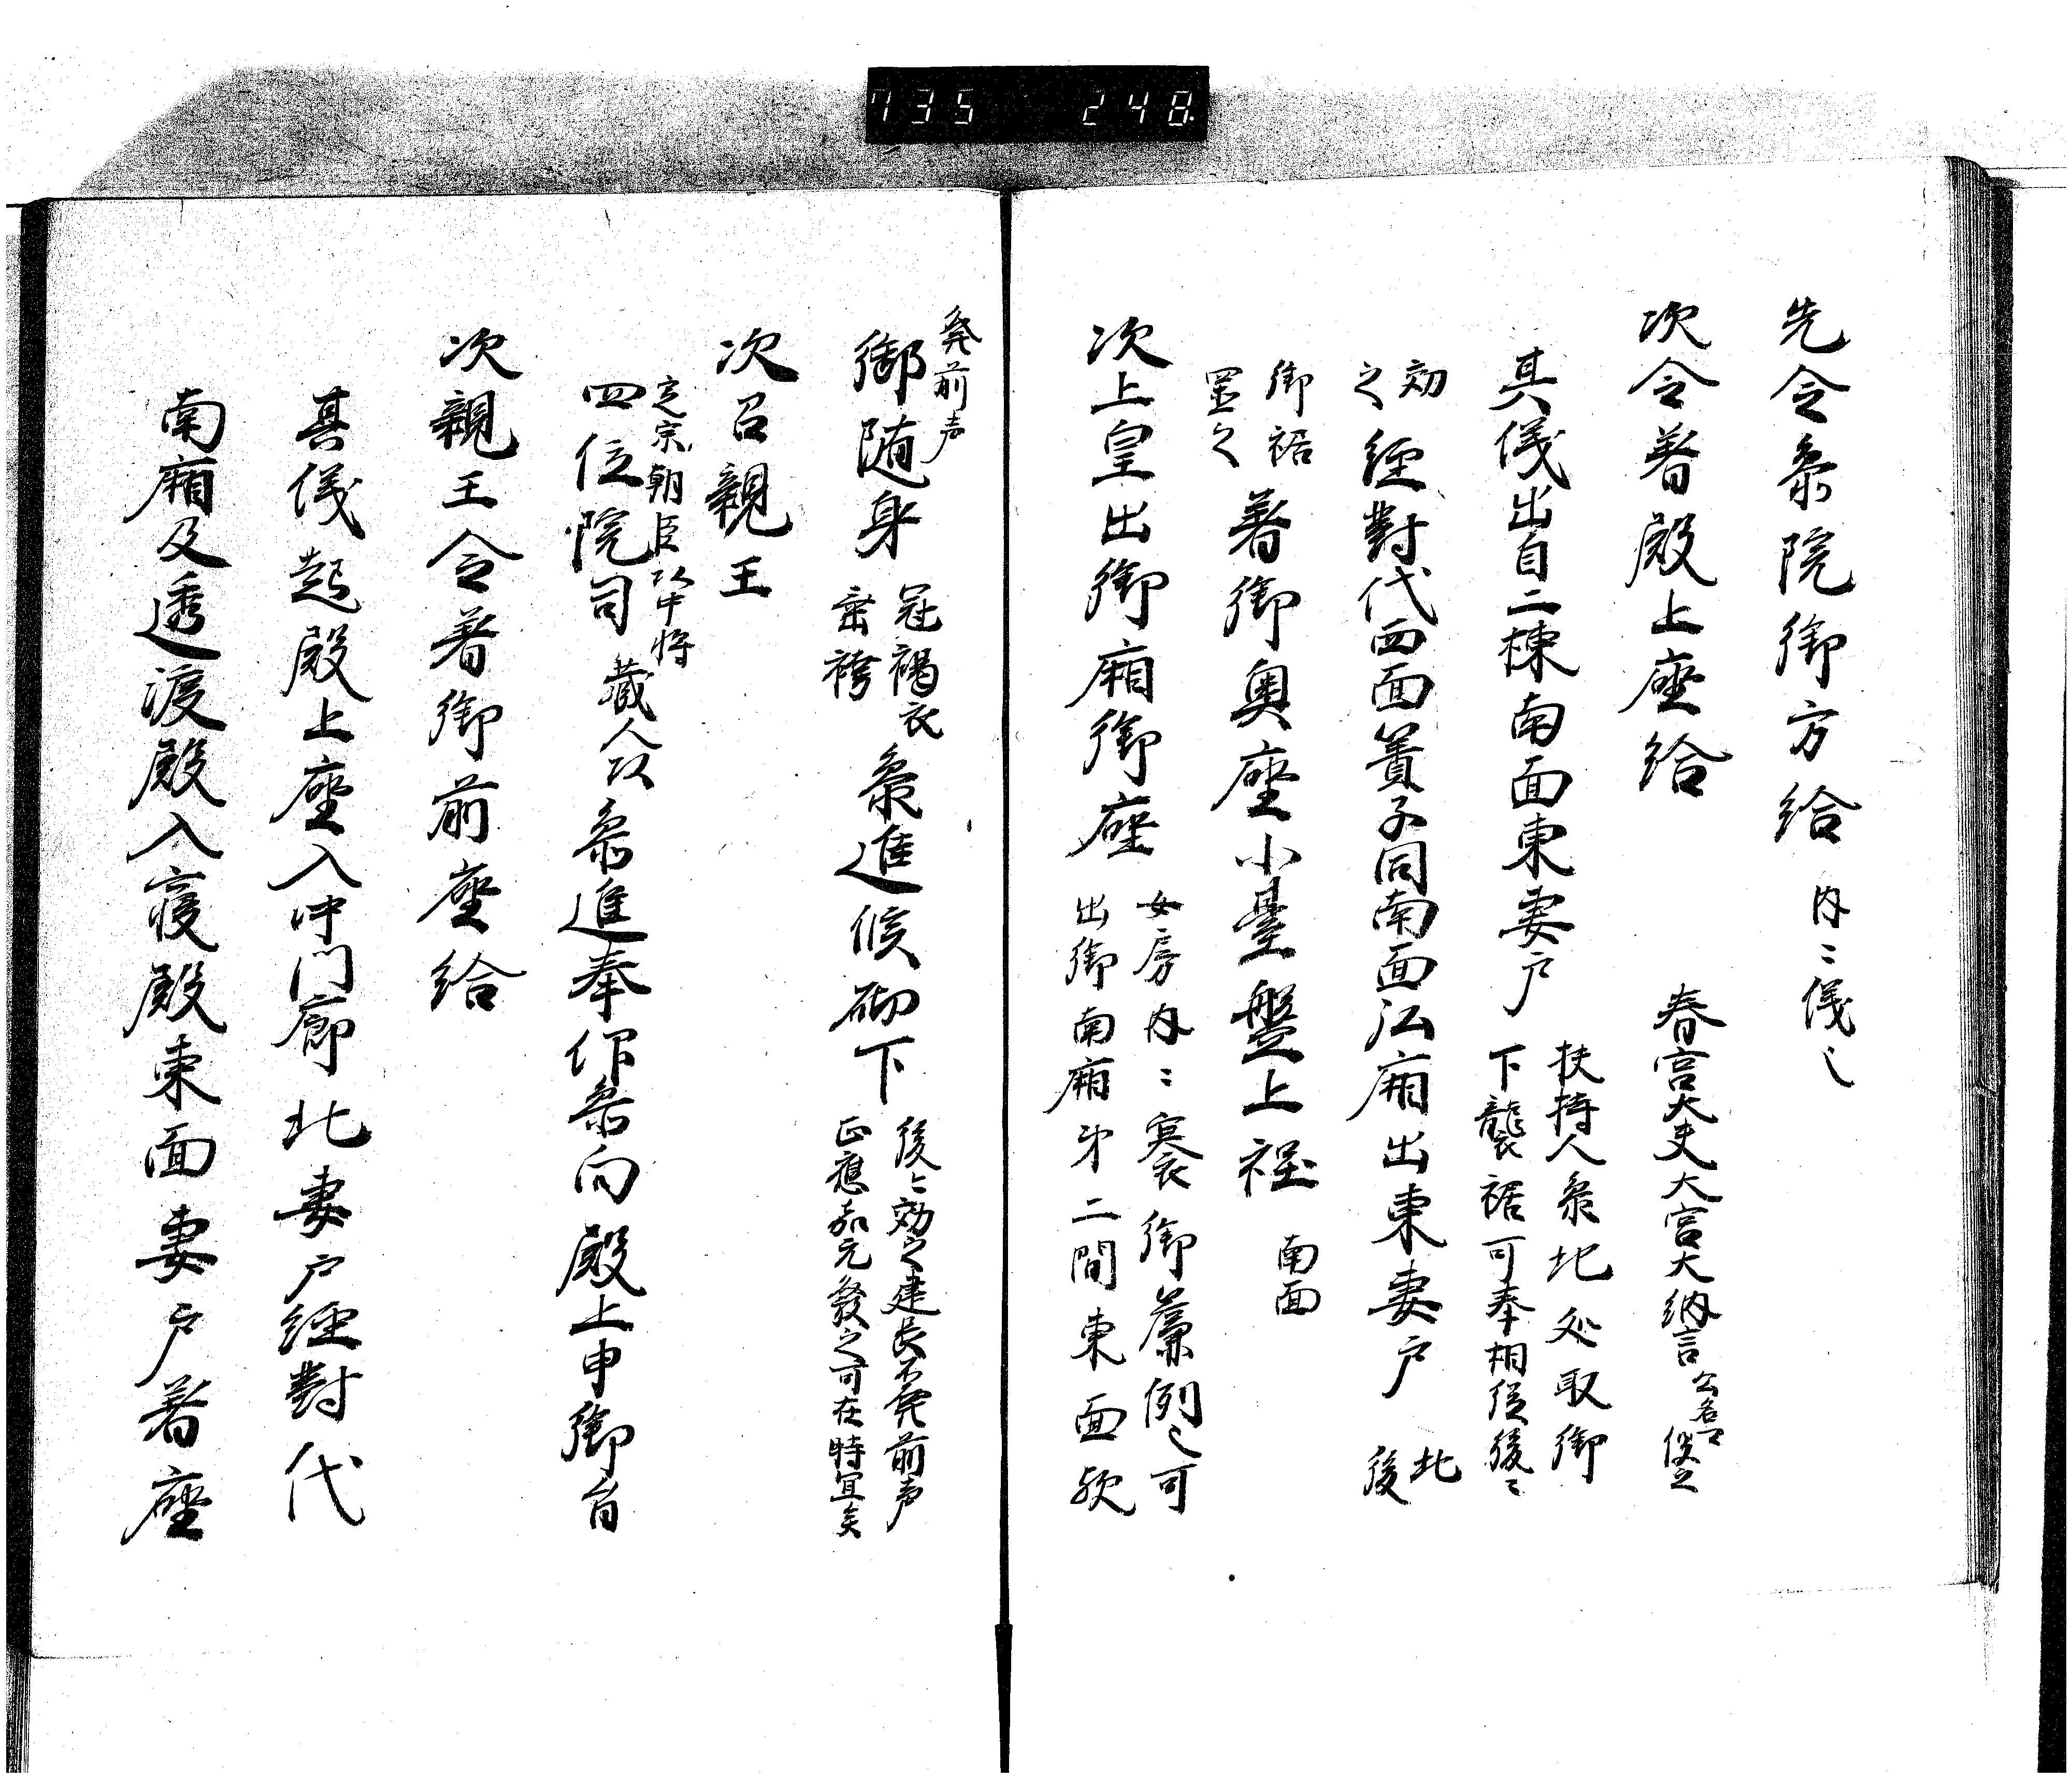 735 248
先令参院御方給 内〻儀之
次令着殿上座給 春宮大夫大宮大納言 公名
其儀出自二棟南面東妻戸 扶持人参此処取御
下襲裾可奉相従後〻
効之 経對代西面簀子同南面弘廂出東妻戸 北後
御裾置之 着御奥座小臺盤上 南面
次上皇出御廂御座 女房内〻褰御簾例之可
出御南廂第二間東面歟
発前声
御随身 冠褐衣
垂袴 参進候砌下 後〻効之建長不発前声
正應嘉元發之可在時宜矣
次召親王
定宗朝臣 中将
四位院司 蔵人 参進奉仰参向殿上申御旨
次親王令着御前座給
其儀起殿上座入中門廊北妻戸經對代
南廂及透渡殿入寝殿東面妻戸着座